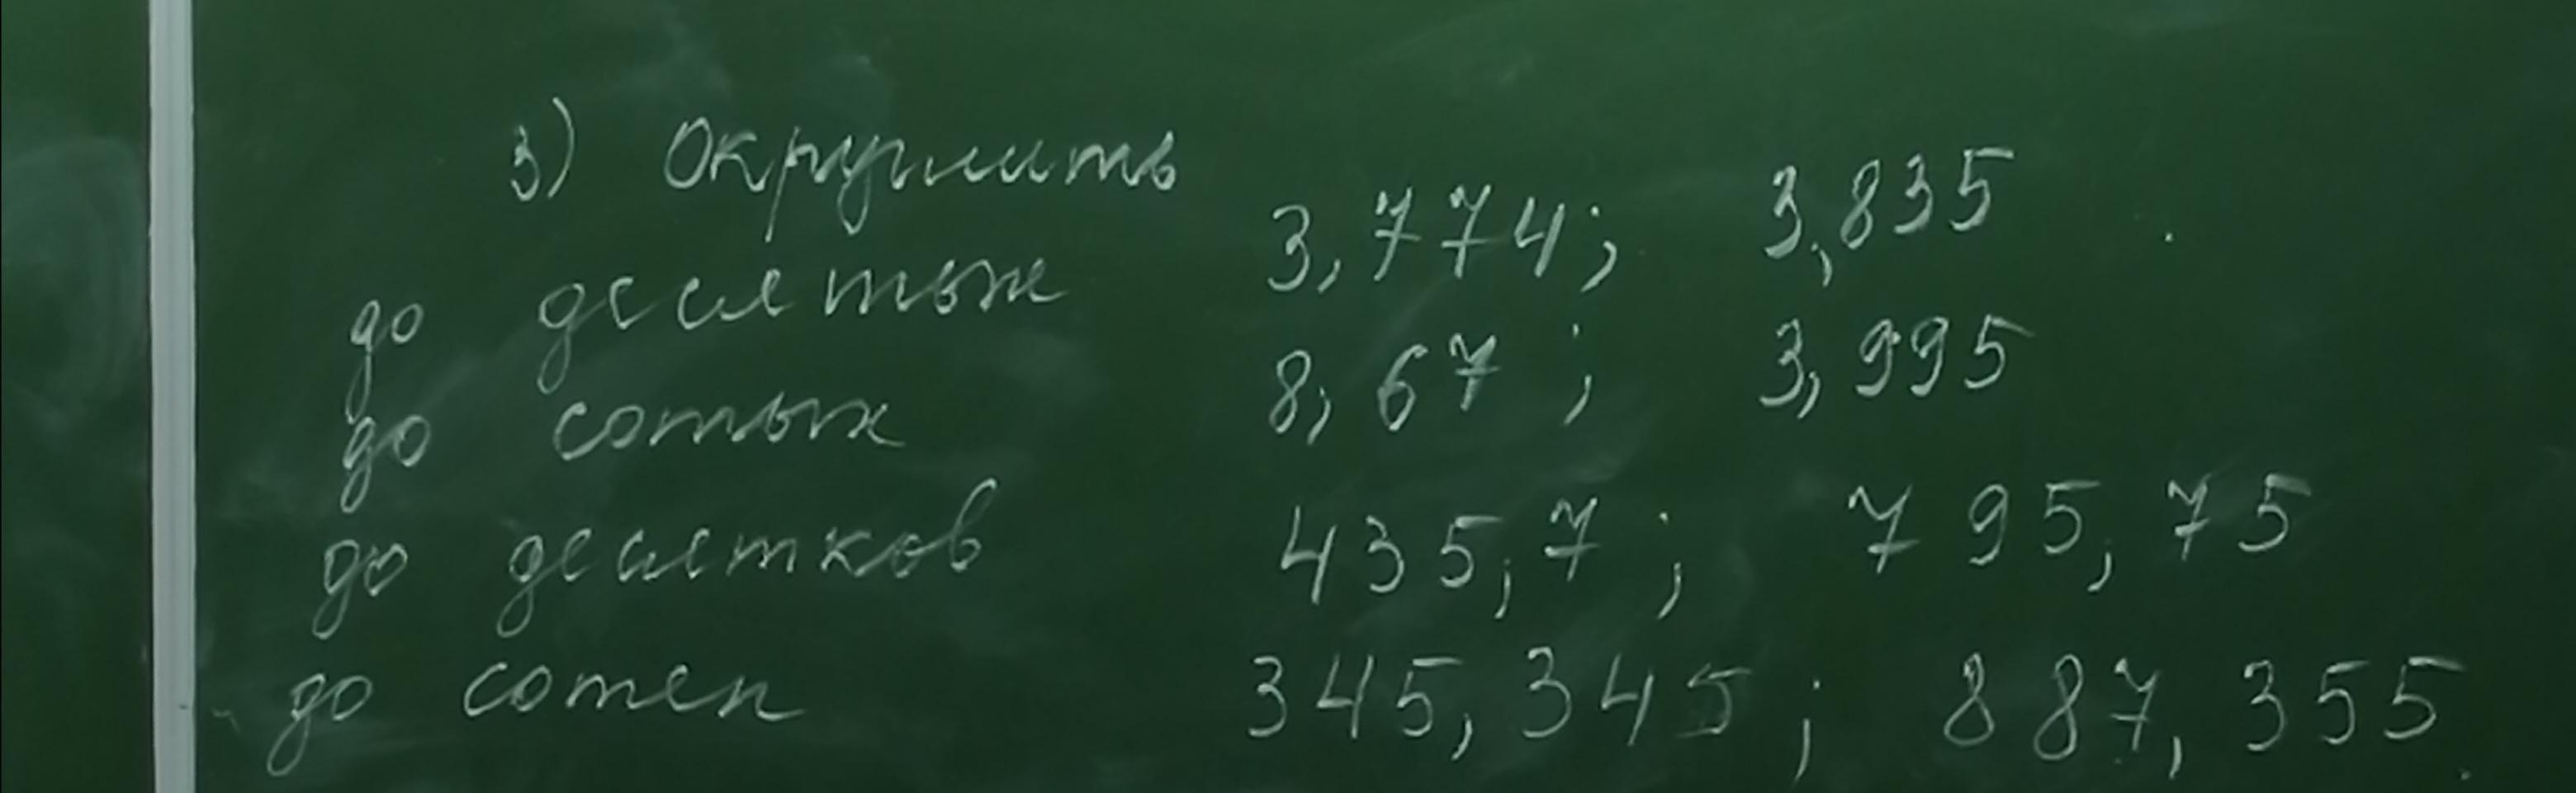 3) Округлить
до десятых 3,774; 3,835
до сотых 8,67; 3,995
до десятков 435,7; 795,75
до сотен 345,345; 887,355